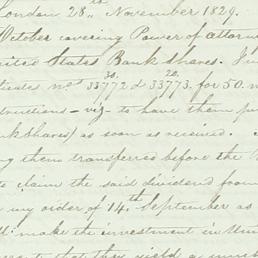 London 28th November 1829.
October covering Power of Attor
United States Bank Shares.
ficates Nos 33772 & 33773. for 50.
30. 20.
structions — viz — to have them
nk shares) as soon as received.
ing them transferred before the
to claim the said dividend from
my order of 14th September as
make the investment in
to that they yield a